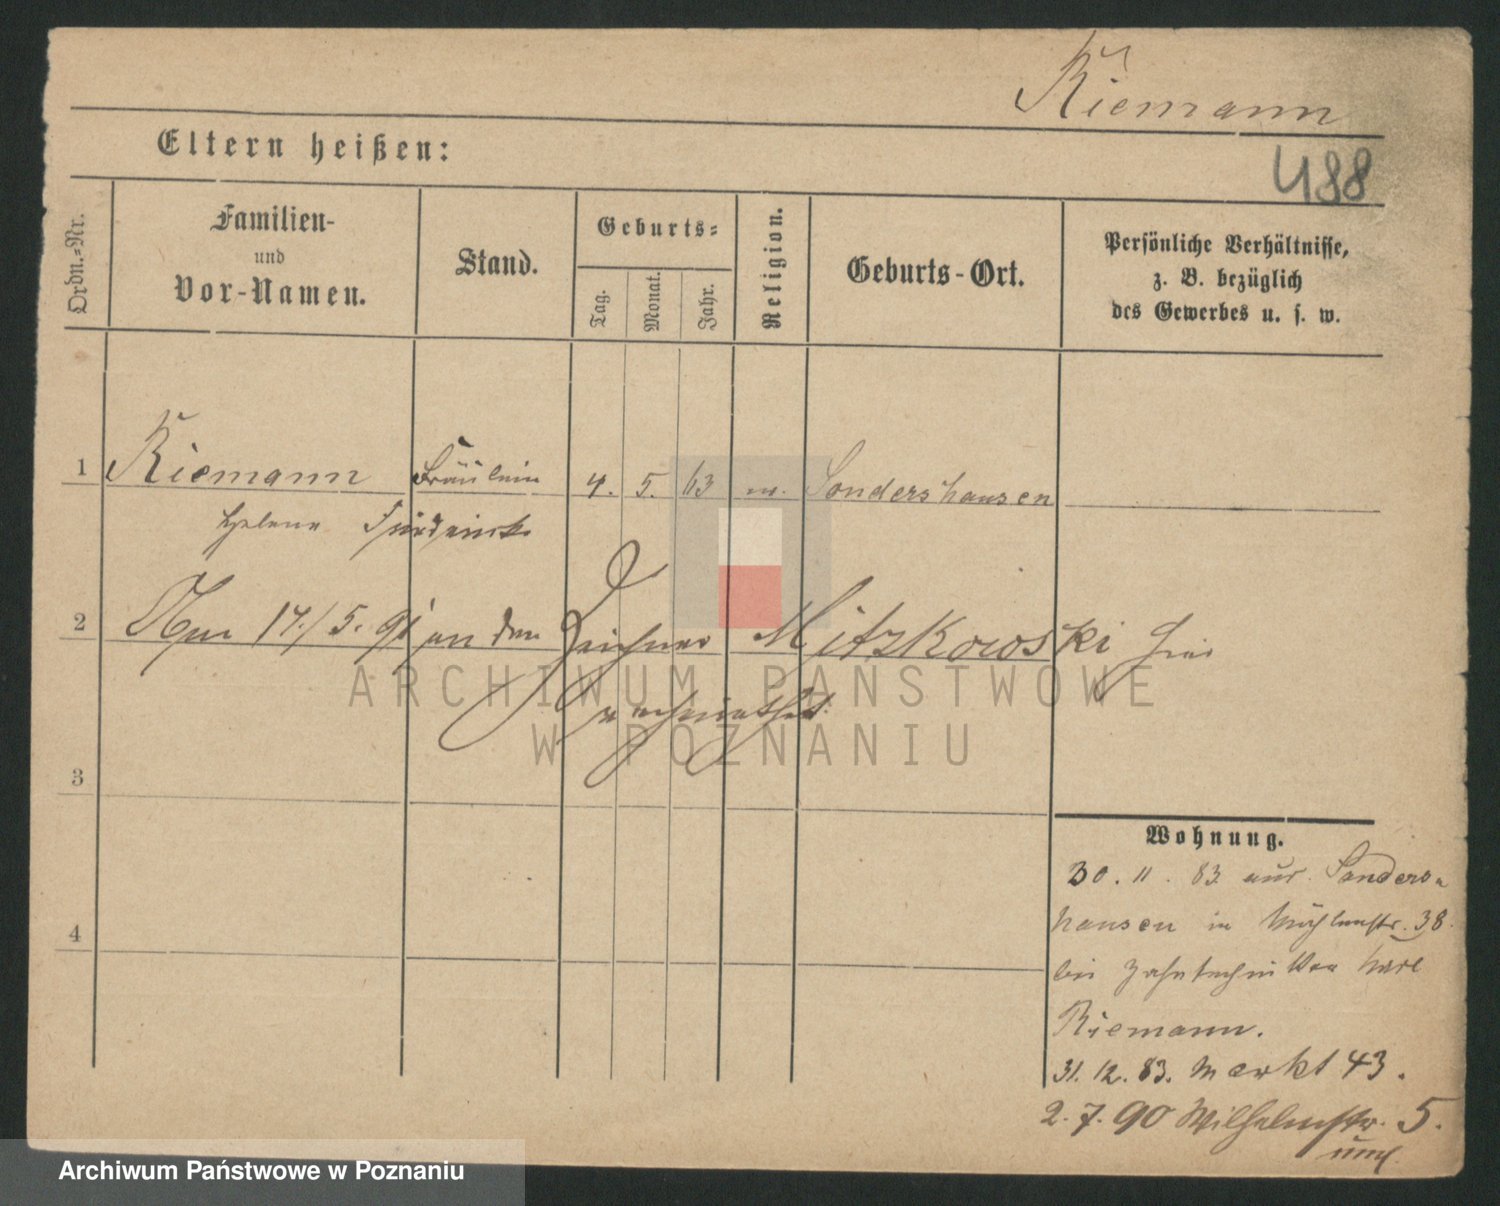 Riemann
Eltern heißen:
488
Ordn.-Nr.
Familien-
und
Vor-Namen.
Stand.
Geburts-
Tag.
Monat.
Jahr.
Religion.
Geburts-Ort.
Persönliche Verhältnisse,
z. B. bezüglich
des Gewerbes u. s. w.
1 Riemann Fräulein 4. 5. 63 Sondershausen
Helene
2 17./5. 91 an den Zeichner Mitzkowski hier
verheirathet.
3
4
Wohnung.
30. 11. 83. aus Sonders-
hausen in Mühlenstr. 38.
bei Zahntechniker Karl
Riemann.
31. 12. 83. Markt 43.
2. 7. 90 Wilhelmstr. 5.
ARCHIWUM PAŃSTWOWE
W POZNANIU
Archiwum Państwowe w Poznaniu